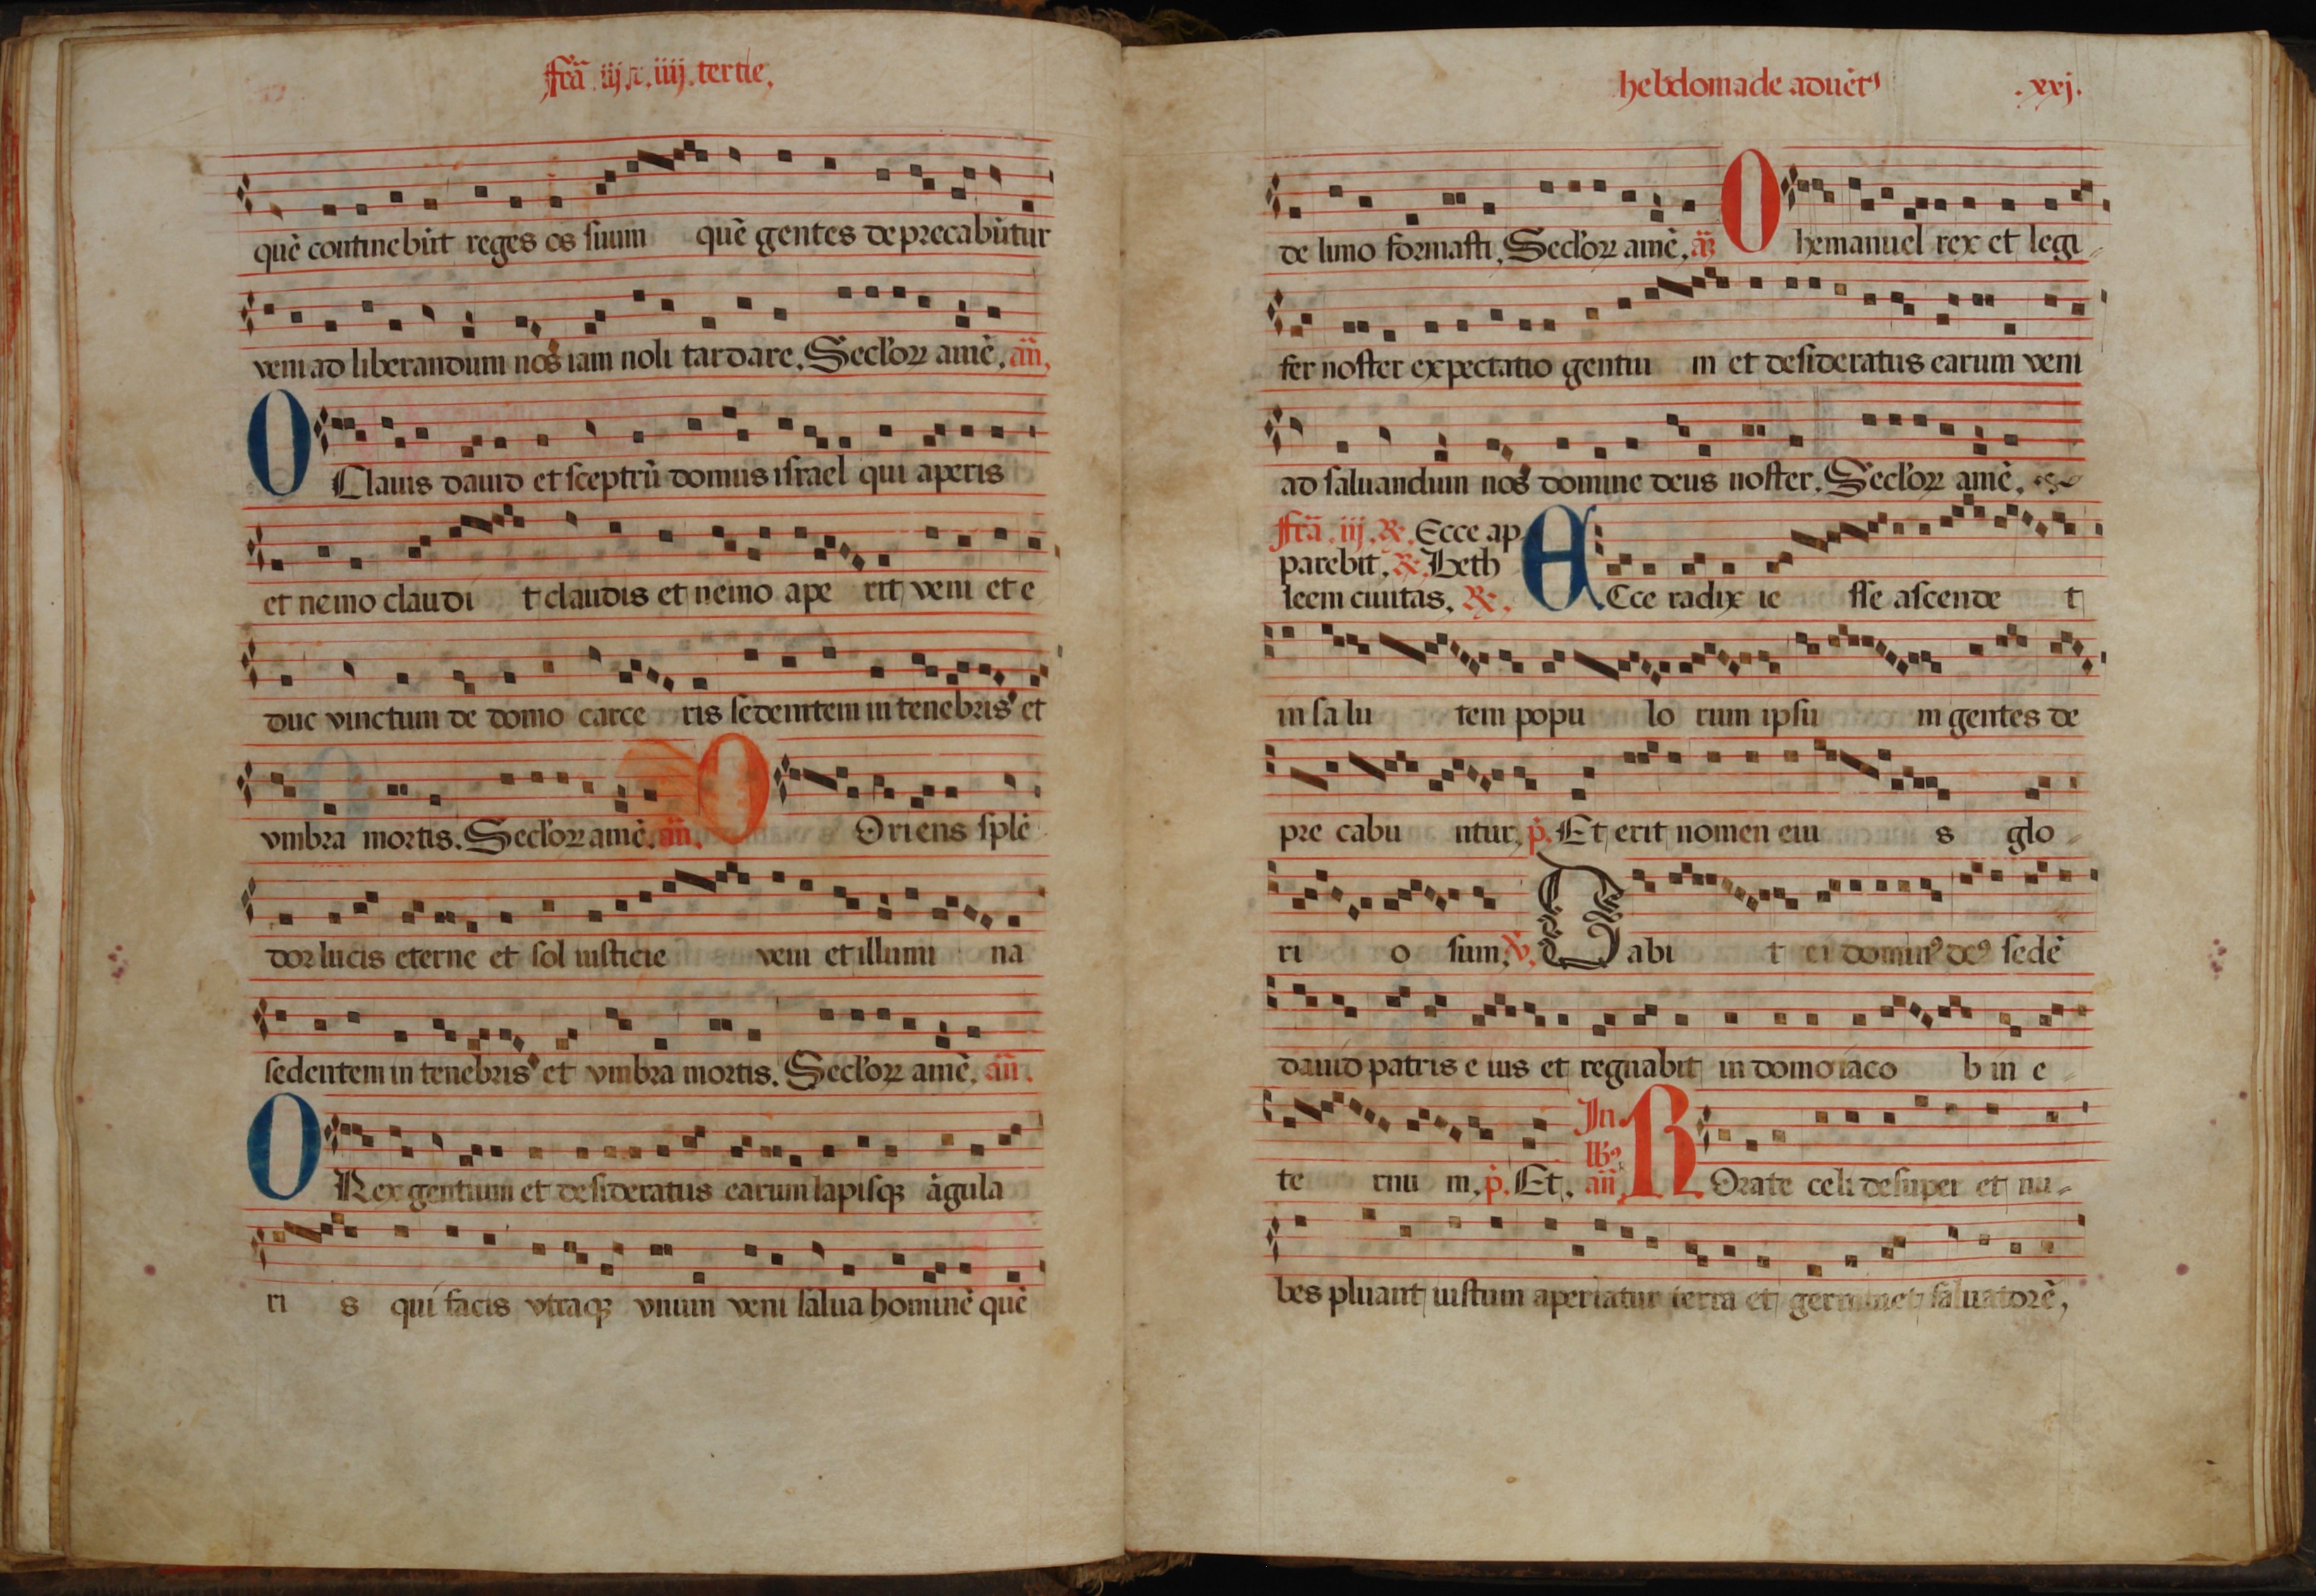 fr̃a .iij. ⁊ .iiij. tertie.
quē continebūt reges os suum quē gentes deprecabūtur
veni ad liberandum nos iam noli tardare. Secl'oꝝ amē. añ.
O Clauis dauid et sceptrū domus israel qui aperis
et nemo claudi t claudis et nemo ape rit veni et e
duc vinctum de domo carce ris sedentem in tenebris et
vmbra mortis. Secl'oꝝ amē. añ. O Oriens splē
dor lucis eterne et sol iusticie veni et illumi na
sedentem in tenebris et vmbra mortis. Secl'oꝝ amē. añ.
O Rex gentium et desideratus earum lapisqꝫ āgula
ri s qui facis vtraqꝫ vnum veni salua hominē quē
hebdomade aduēt⁹ .xxj.
de limo formasti. Secl'oꝝ amē. añ O hemanuel rex et legi
fer noster expectatio gentiu m et desideratus earum veni
ad saluandum nos domine deus noster. Secl'oꝝ amē.
fr̃a .iij. ℟. Ecce ap
parebit. ℟. Beth
leem ciuitas. ℟. ECce radix ie sse ascende t
in sa lu tem popu lo rum ipsu m gentes de
pre cabu ntur. p̄. Et erit nomen eiu s glo
ri o sum. ℣. Dabi t ei domin⁹ de⁹ sedē
dauid patris e ius et regnabit in domo iaco b in e
te rnu m. p̄. Et. In lb⁹ añ ROrate celi desuper et nu
bes pluant iustum aperiatur terra et germinet saluatorē,